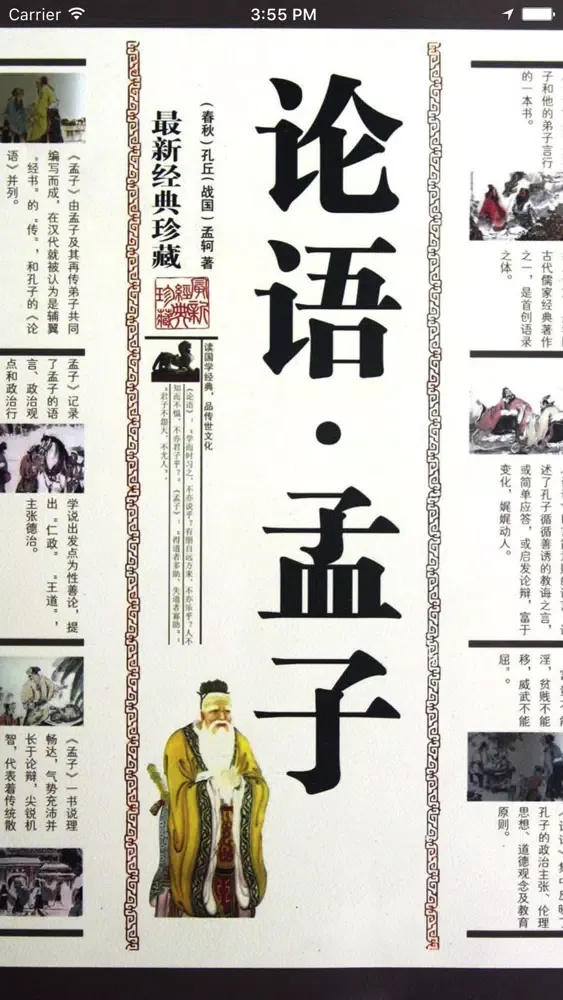 Carrier
3:55 PM
子和他的弟子言行
的一本书。
古代儒家经典著作
之一，是首创语录
之体。
述了孔子循循善诱的教诲之言，
或简单应答，或启发论辩，富于
变化，娓娓动人。
淫，贫贱不能
移，威武不能
屈”。
孔子的政治主张、伦理
思想、道德观念及教育
原则。
论语·孟子
（春秋）孔丘（战国）孟轲 著
最新经典珍藏
最新
經典
珍藏
读国学经典，品传世文化
《论语》：“学而时习之，不亦说乎？有朋自远方来，不亦乐乎？人不
知而不愠，不亦君子乎？”《孟子》：“得道者多助，失道者寡助。”
“君子不怨天，不尤人。”
《孟子》由孟子及其再传弟子共同
编写而成，在汉代就被认为是辅翼
“经书”的“传”，和孔子的《论
语》并列。
孟子》记录
了孟子的语
言、政治观
点和政治行
学说出发点为性善论，提
出“仁政”“王道”，
主张德治。
《孟子》一书说理
畅达，气势充沛并
长于论辩，尖锐机
智，代表着传统散